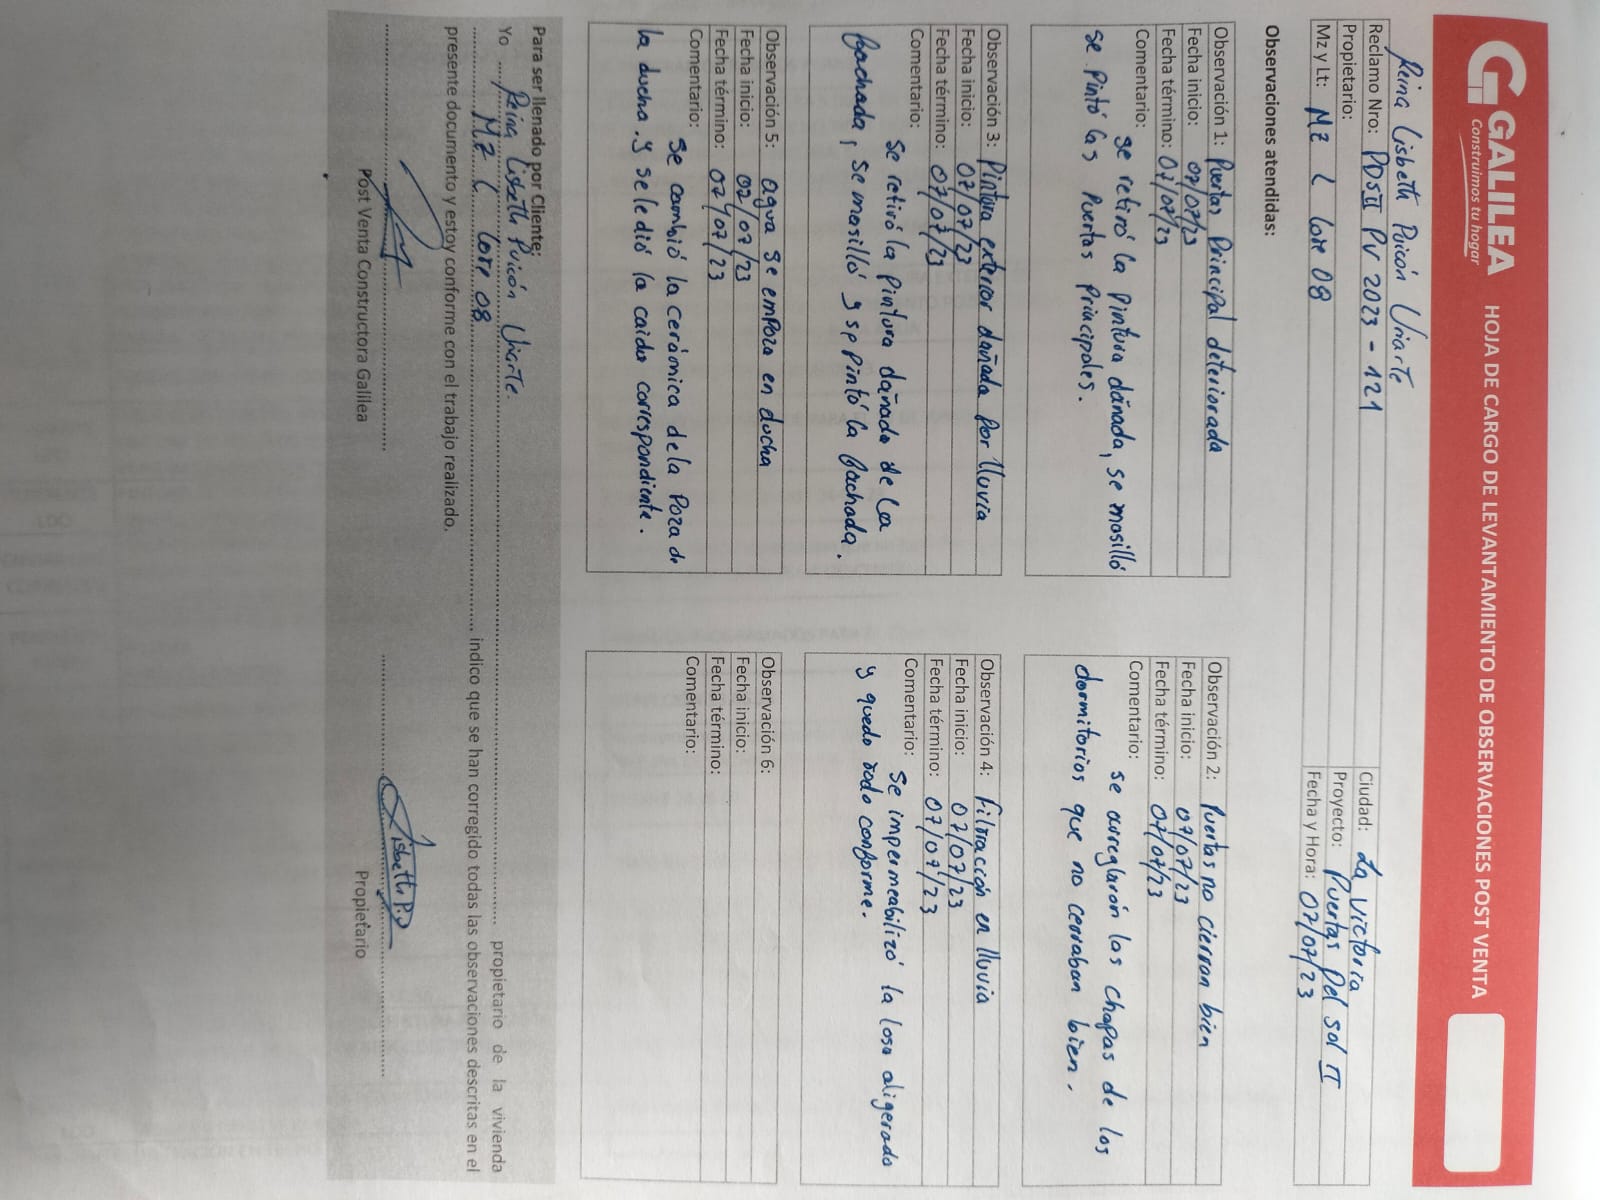 GALILEA
Construimos tu hogar
HOJA DE CARGO DE LEVANTAMIENTO DE OBSERVACIONES POST VENTA
Reina Lisbeth Puicón Uriarte
Reclamo Nro: PDSII PV 2023 - 121
Ciudad: La Victoria
Propietario:
Proyecto: Puertas Del sol II
Mz y Lt: Mz L Lote 08
Fecha y Hora: 07/07/23
Observaciones atendidas:
Observación 1: Puertas Principal deteriorada
Fecha inicio: 07/07/23
Fecha término: 07/07/23
Comentario: Se retiró la pintura dañada, se masilló
se pintó las puertas principales.
Observación 2: Puertas no cierran bien
Fecha inicio: 07/07/23
Fecha término: 07/07/23
Comentario: se arreglarón las chapas de los
dormitorios que no cerraban bien.
Observación 3: Pintura exterior dañada por lluvia
Fecha inicio: 07/07/23
Fecha término: 07/07/23
Comentario: Se retiró la pintura dañada de la
fachada, se masilló y se pintó la fachada.
Observación 4: Filtracción en lluvia
Fecha inicio: 07/07/23
Fecha término: 07/07/23
Comentario: Se impermeabilizó la losa aligerado
y quedo todo conforme.
Observación 5: agua se empoza en ducha
Fecha inicio: 07/07/23
Fecha término: 07/07/23
Comentario: Se cambió la cerámica de la Poza de
la ducha. y se le dió la caida correspondiente.
Observación 6:
Fecha inicio:
Fecha término:
Comentario:
Para ser llenado por Cliente:
Yo Reina Lisbeth Puicón Uriarte. propietario de la vivienda
Mz L Lote 08 indico que se han corregido todas las observaciones descritas en el
presente documento y estoy conforme con el trabajo realizado.
Lisbeth P.
Post Venta Constructora Galilea
Propietario